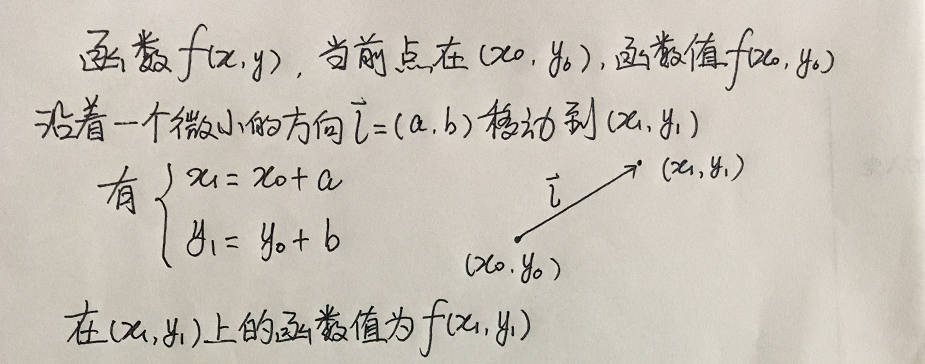 函数f(x,y),当前点在(x₀,y₀),函数值f(x₀,y₀)
沿着一个微小的方向l⃗=(a,b)移动到(x₁,y₁)
有 { x₁=x₀+a
y₁=y₀+b
l⃗
(x₁,y₁)
(x₀,y₀)
在(x₁,y₁)上的函数值为f(x₁,y₁)